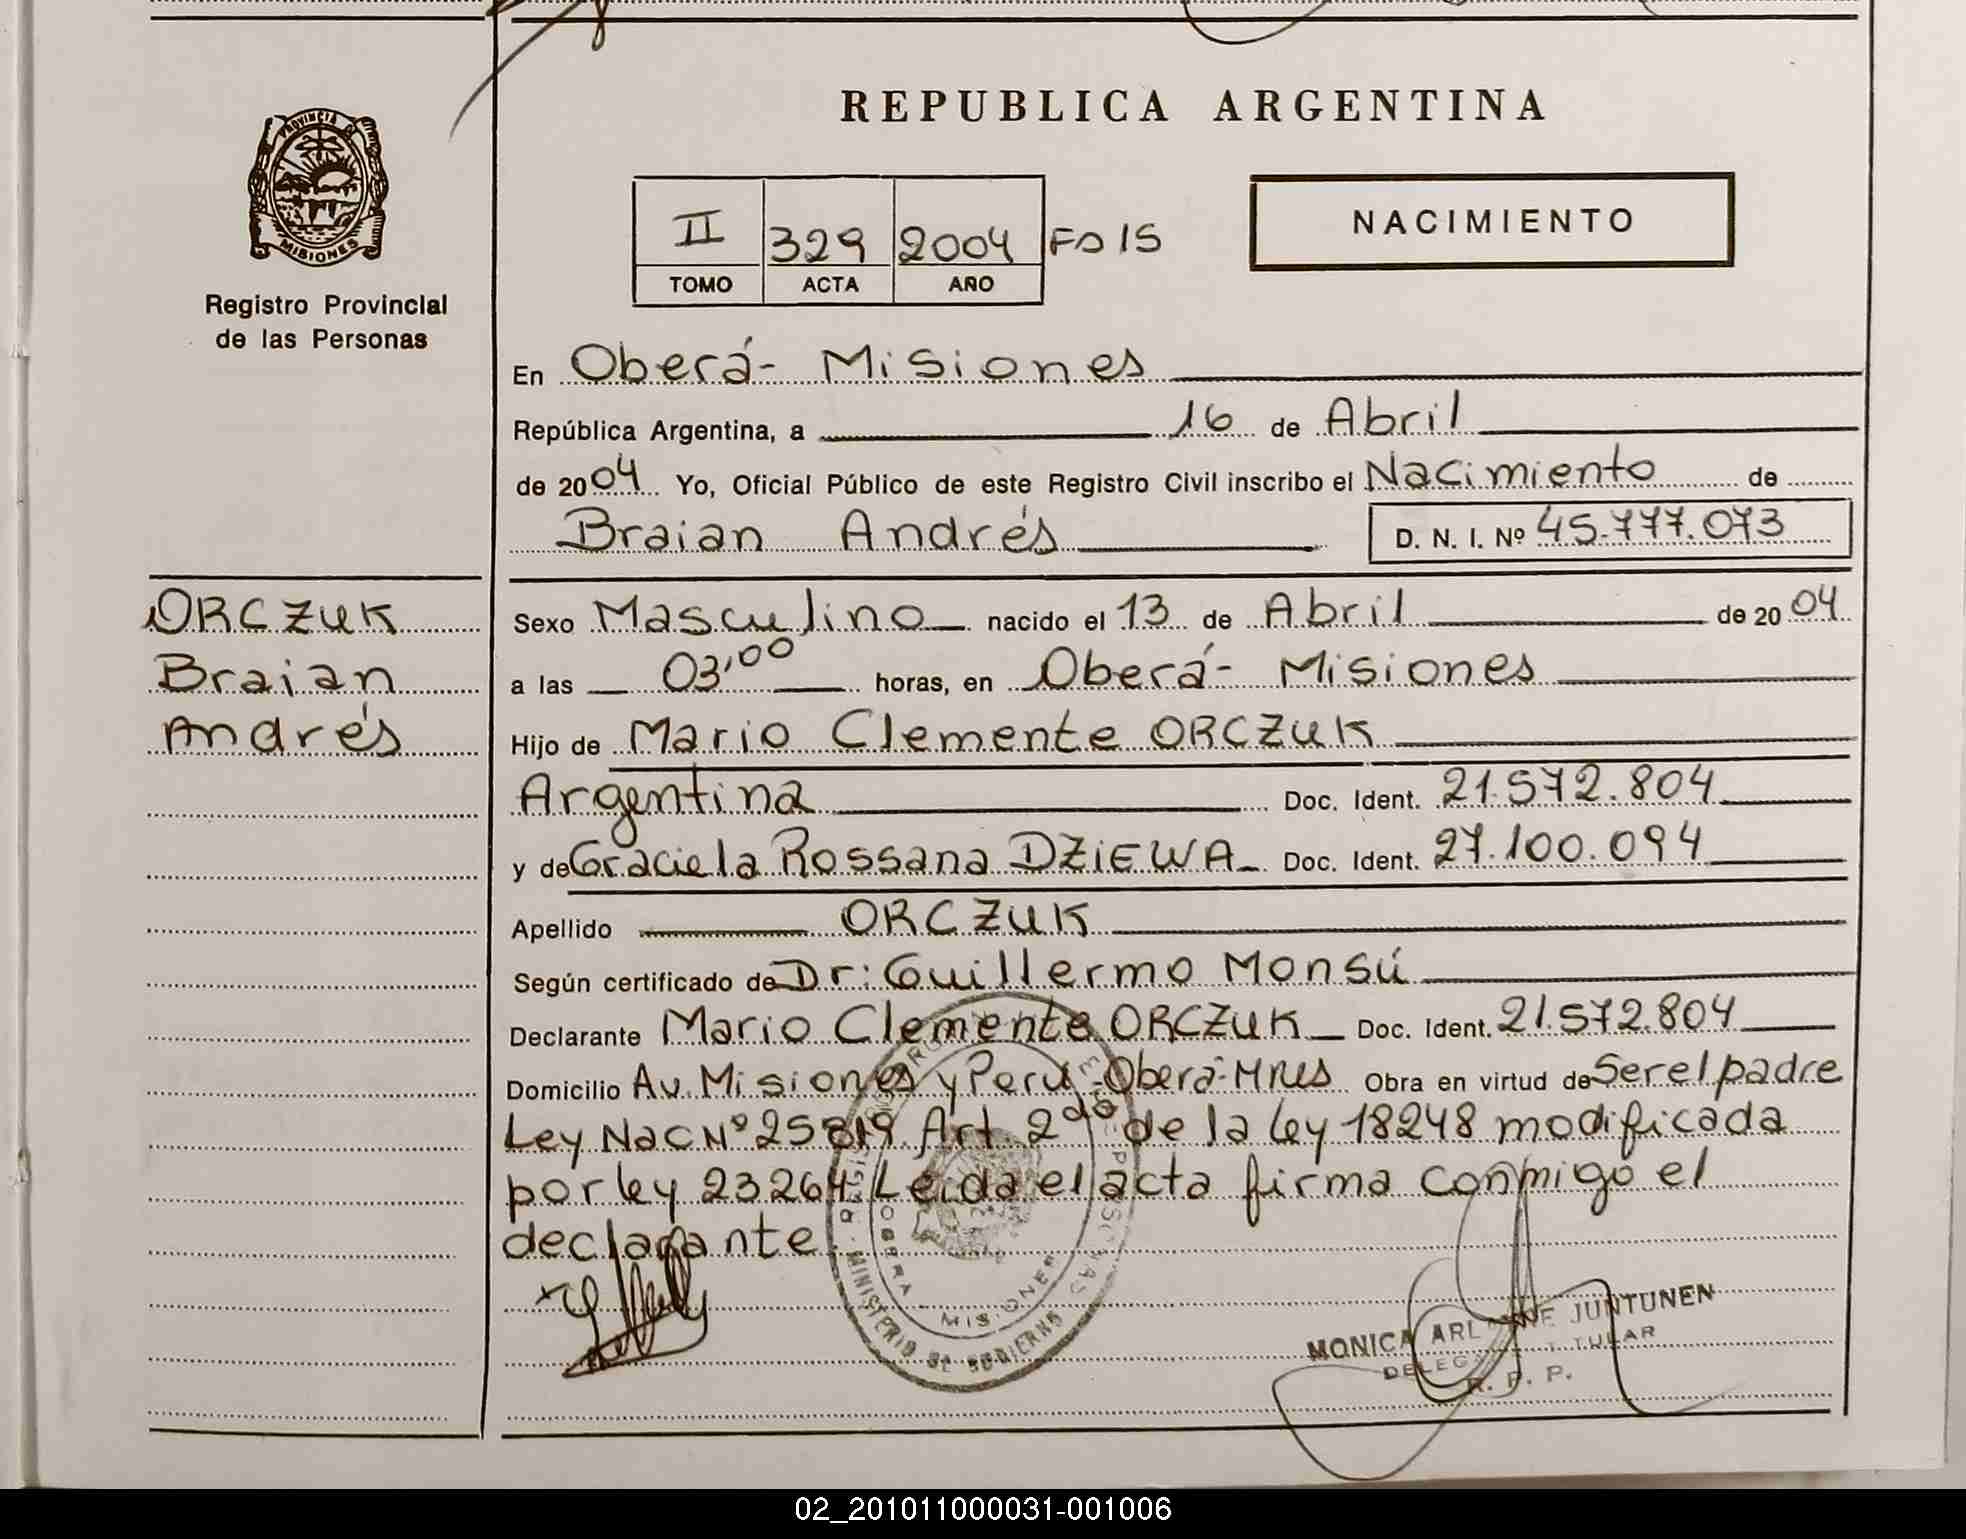 REPUBLICA ARGENTINA
PROVINCIA DE
MISIONES
Registro Provincial
de las Personas
NACIMIENTO
II 329 2004 Fo 15
TOMO ACTA AÑO
En Oberá- Misiones
República Argentina, a 16 de Abril
de 2004 Yo, Oficial Público de este Registro Civil inscribo el Nacimiento de
Braian Andrés D. N. I. Nº 45.777.073
ORCZUK
Braian
Andrés
Sexo Masculino nacido el 13 de Abril de 2004
a las 03,00 horas, en Oberá- Misiones
Hijo de Mario Clemente ORCZUK
Argentina Doc. Ident. 21.572.804
y de Graciela Rossana DZiEWA Doc. Ident. 27.100.094
Apellido ORCZUK
Según certificado de Dr: Guillermo Monsú
Declarante Mario Clemente ORCZUK Doc. Ident. 21.572.804
Domicilio Av. Misiones y Perú-Oberá-MNES Obra en virtud de Ser el padre
Ley Nac Nº 25819 Art. 2do de la ley 18248 modificada
por ley 23264 Leida el acta firma conmigo el
declarante
MINISTERIO DE GOBIERNO
OBERA - MISIONES
MONICA JUNTUNEN
TITULAR
R. P. P.
02_201011000031-001006